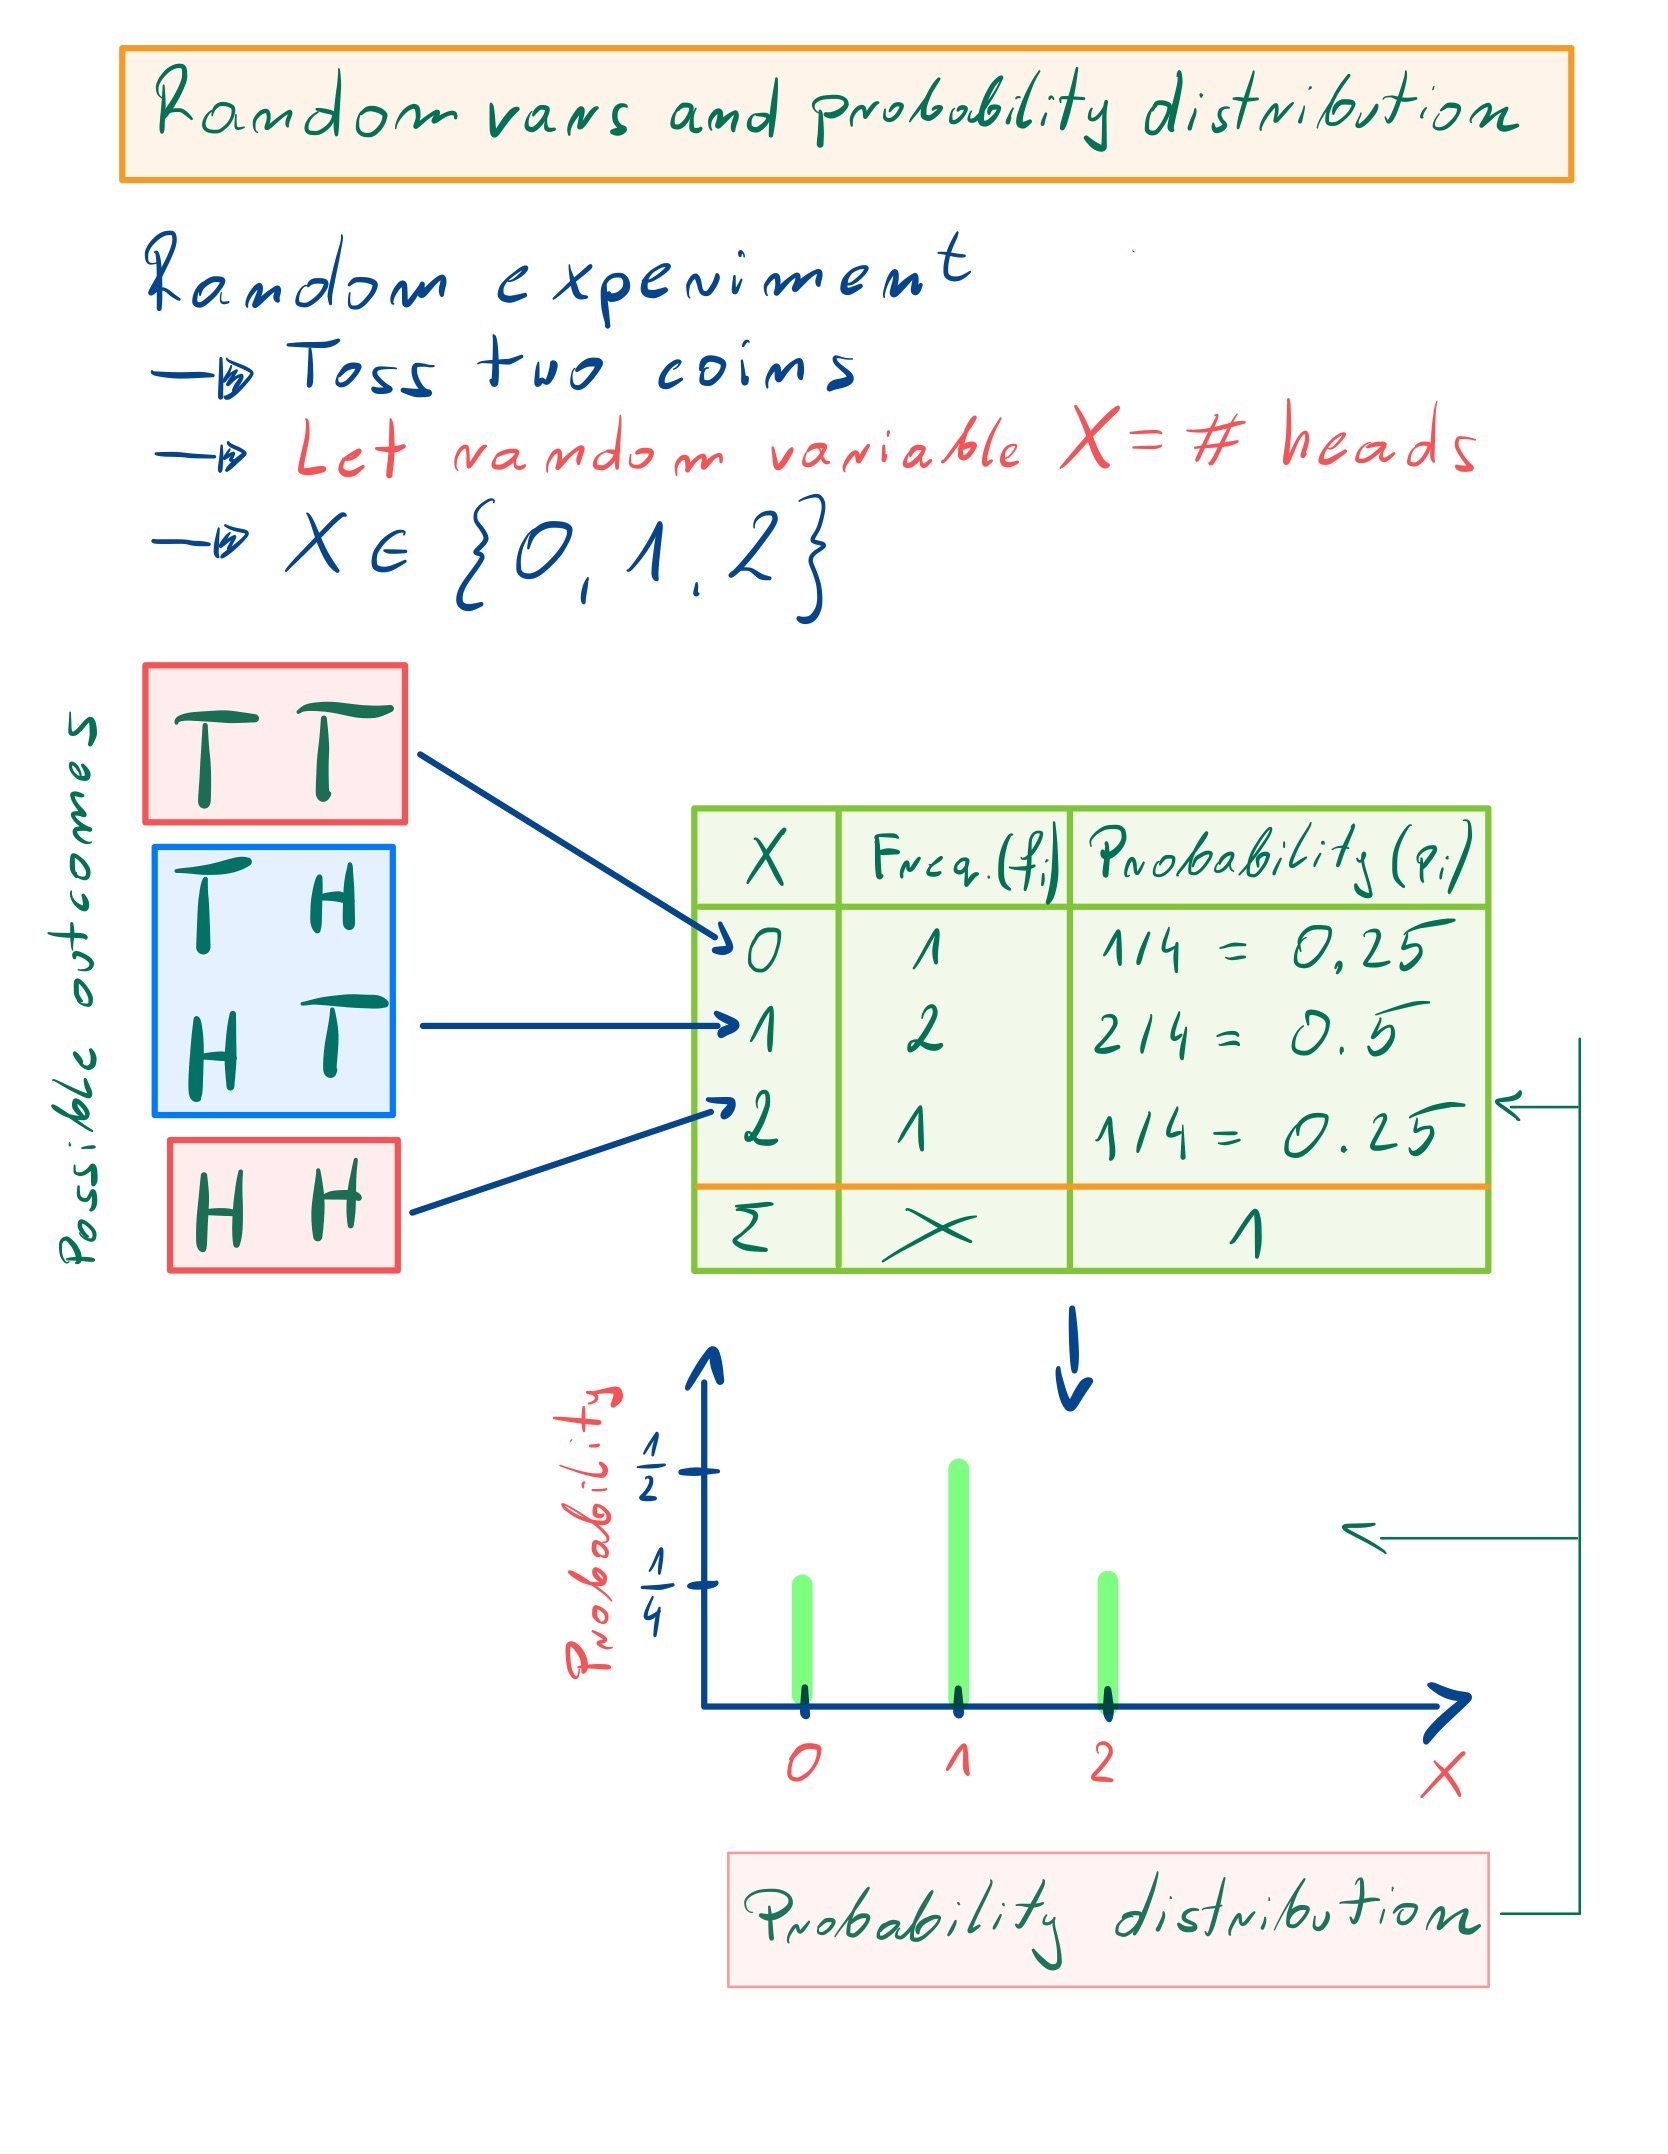 Random vars and probability distribution
Random experiment
→ Toss two coins
→ Let random variable X = # heads
→ X ∈ {0, 1, 2}
Possible outcomes
T T
T H
H T
H H
X Freq. (fi) Probability (pi)
0 1 1/4 = 0.25
1 2 2/4 = 0.5
2 1 1/4 = 0.25
Σ X 1
Probability
1/2
1/4
0 1 2
X
Probability distribution